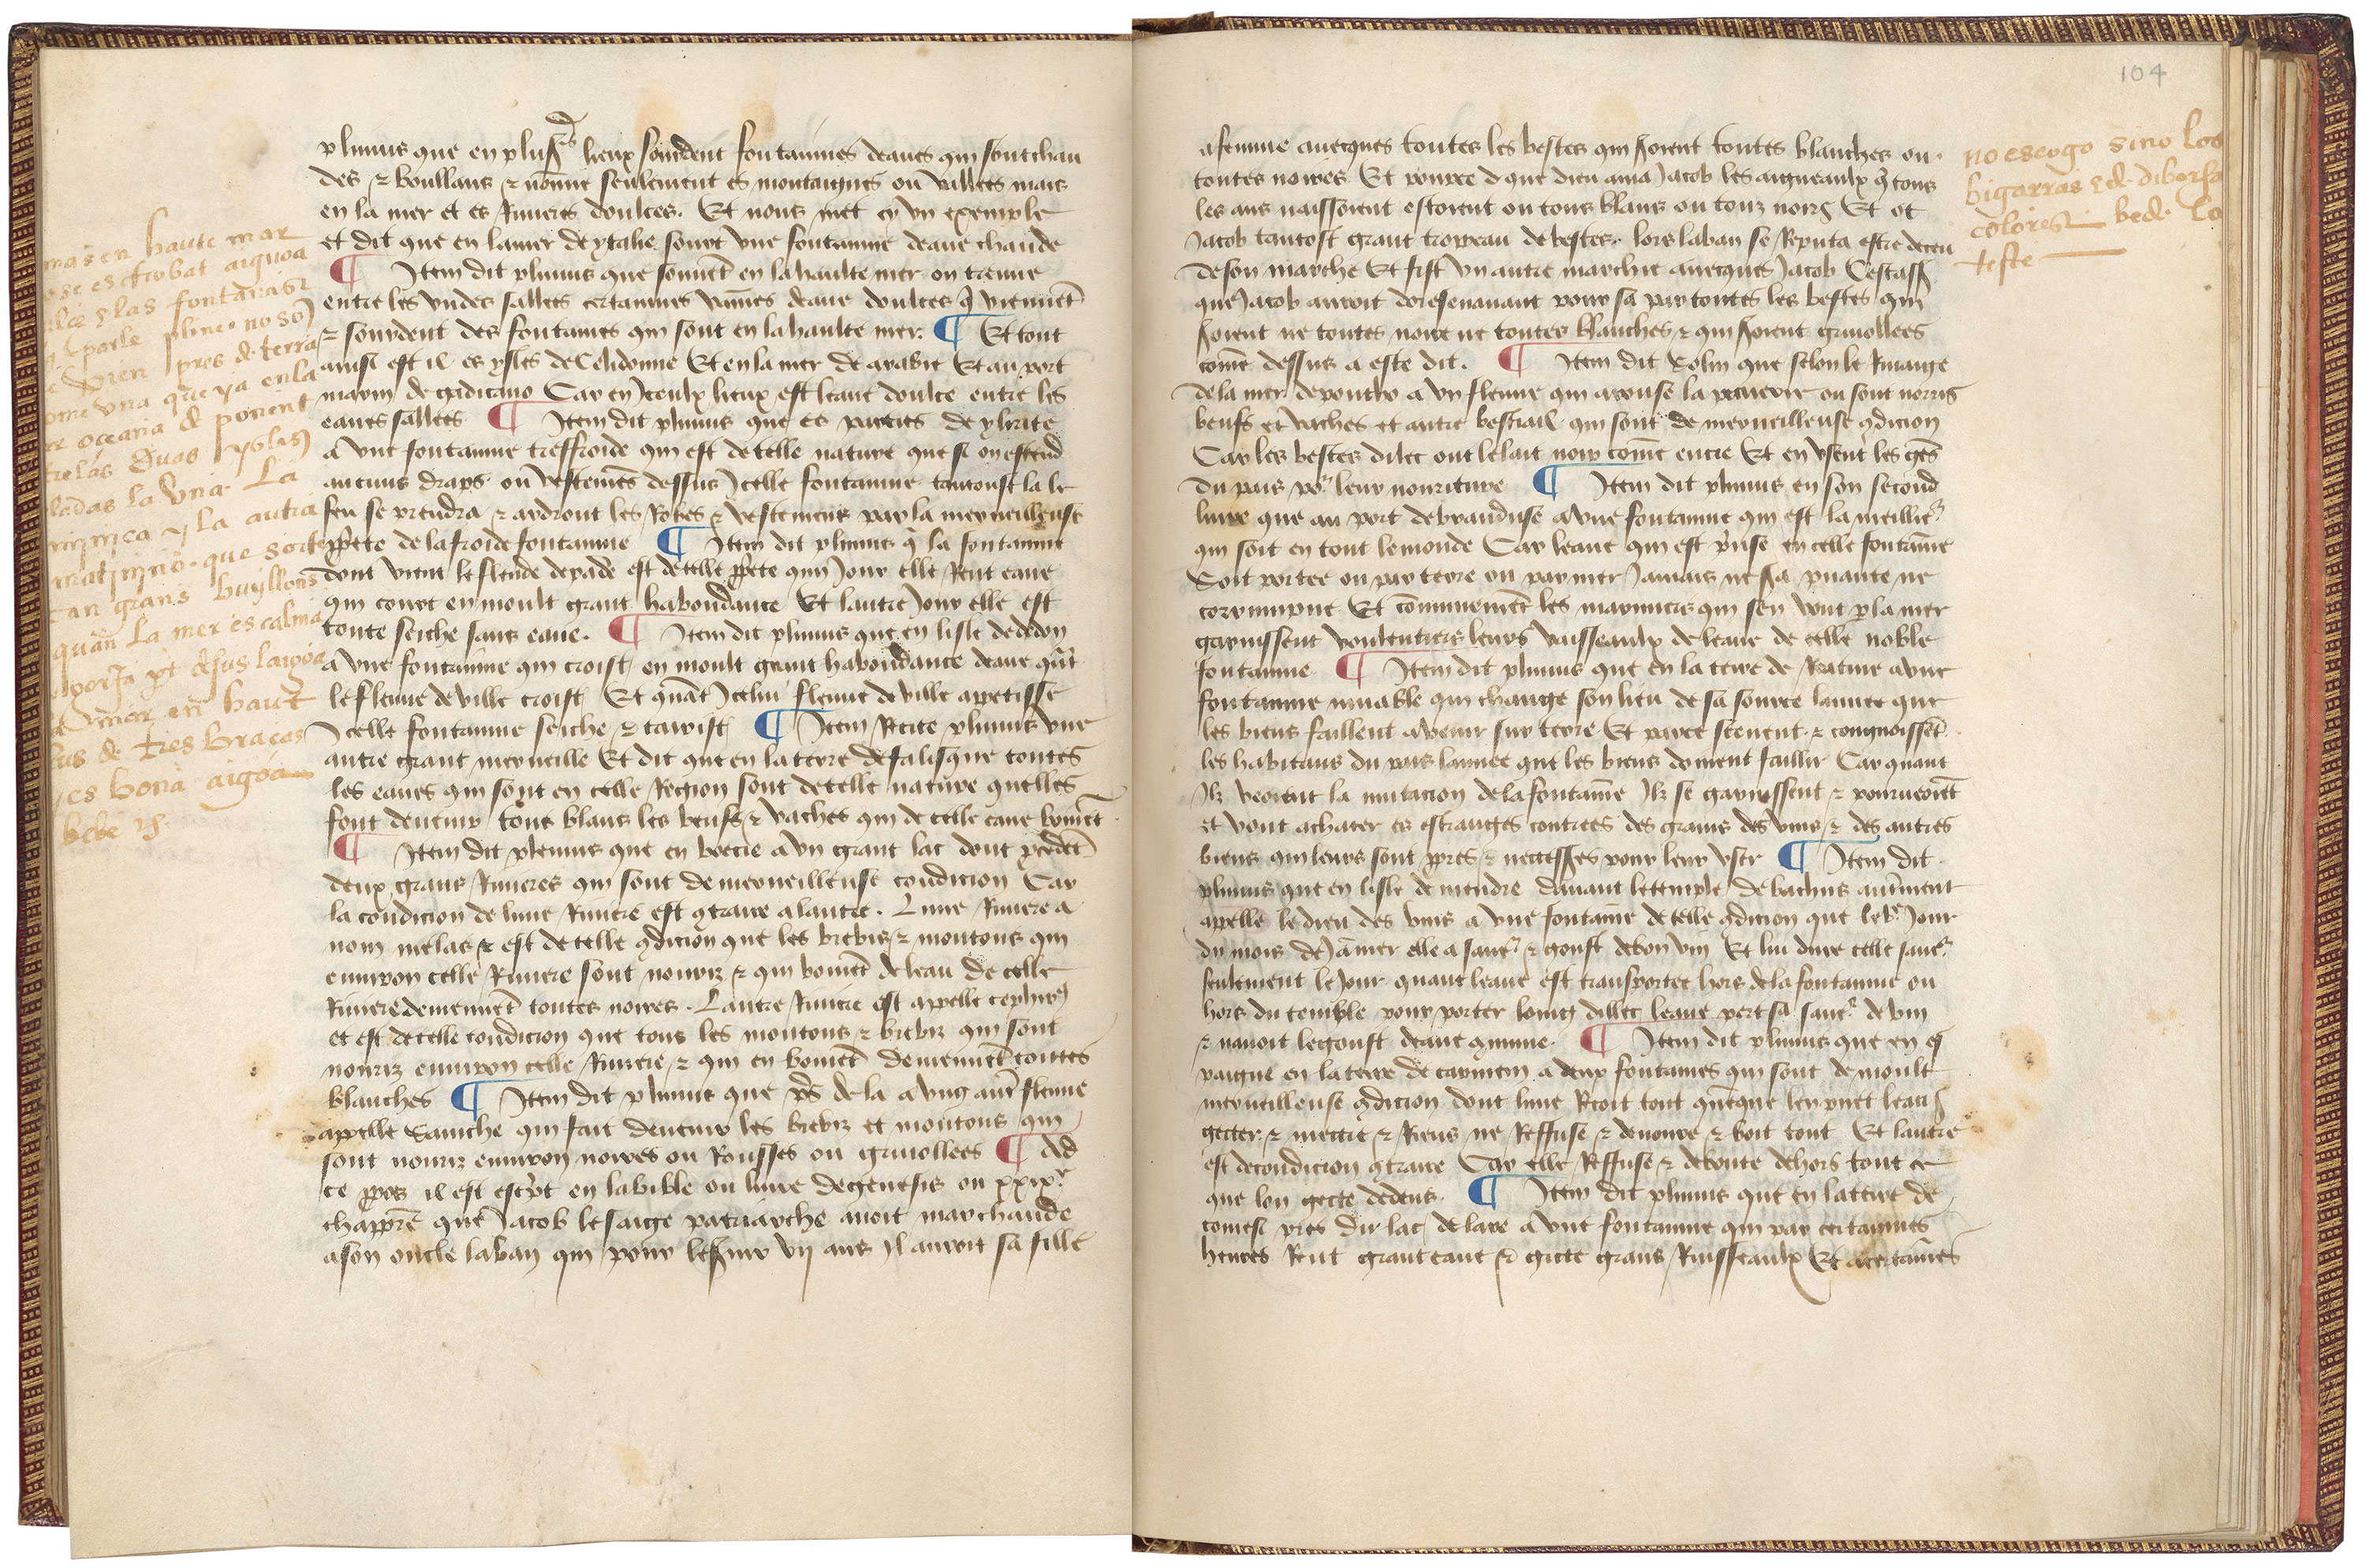 plinius que en plus's lieux sourdent fontaines deaues qui sont chau
des ⁊ boullans ⁊ nonme seulement es montaignes ou vallees mais
en la mer et es Riuieres doulces. Et nous met cy vn exemple
et dit que en la mer de ytalie sourt vne fontaine deaue chaude
¶ Item dit plinius que souuēt en la haulte mer on treuue
entre les vndes sallees certaines vaines deaue doulces q̄ viennēt
⁊ sourdent des fontaines qui sont en la haulte mer. ¶ Et tout
ainsi est il es ysles de Celidonne Et en la mer de arabie Et au port
marin de gaditano Car en Iceulx lieux est leaue doulce entre les
eaues sallees ¶ Item dit plinius que es parties de
a vne fontaine tresfroide qui est de telle nature que si on estend
aucuns draps ou vestemēs dessus Icelle fontaine tantoust la le
feu se prendra ⁊ ardront les Robes ⁊ vestemens par la merueilleuse
pp̄ete de la froide fontaine ¶ Item dit plinius q̄ la fontaine
dont vient le fleuue de pade est de telle pp̄ete quin Iour elle Rent eaue
qui court en moult grant habondance Et lautre Iour elle est
toute seiche sans eaue. ¶ Item dit plinius que en lisle de dedon
a vne fontaine qui croist en moult grant habondance deaue quāt
le fleuue de ville croist Et quāt Icelui fleuue de ville apetisse
Icelle fontaine seiche ⁊ tarist ¶ Item Recite plinius vne
autre grant merueille Et dit que en la terre de falisque toutes
les eaues qui sont en celle Region sont de telle nature quelles
font deuenir tous blans les beufs ⁊ vaches qui de celle eaue boiuēt
¶ Item dit plinius que en boecie a vn grant lac dont pcedēt
deux grans Riuieres qui sont de merueilleuse condicion Car
la condicion de lune Riuiere est qtraire a lautre. Lune Riuiere a
nom melas ⁊ est de telle qdicion que les brebis ⁊ moutons qui
enuiron celle Riuiere sont nourriz ⁊ qui boiuēt de leau de celle
Riuiere deuiennēt toutes noires. Lautre Riuiere est appelle
et est de telle condicion que tous les moutons ⁊ brebiz qui sont
nourriz enuiron celle Riuiere ⁊ qui en boiuēt deuiennēt toutes
blanches ¶ Item dit plinius que ps de la a vng autr̄ fleuue
appelle qui fait deuenir les brebiz et moutons qui
sont nourriz enuiron noires ou Rousses ou griuollees ¶ Ad
ce ppos il est escp̄t en la bible ou liure de genesis ou xxixe
chapp̄re que Iacob le saige patriarche auoit marchande
a son oncle laban qui pour le seruir vij ans Il auroit sa fille
mas en haute mar
se es trobat aiguoa
y las fontanas
parle pline. no so
bien pres de terra
ome vna que ya en la
er oçeana de ponent
las duos yslas
ladas la vna. La
y la autra
que sorte
tan grans buyllons
quan La mer es calma
pt desus laigoa
mar. en haut
de tres braças
es bona aigoa
bebe
104
a femme auecques toutes les bestes qui seroient toutes blanches ou
toutes noires Et pource que dieu ama Iacob les aigneaulx q̄ tous
les ans naissoient estoient ou tous blans ou tous noirs Et ot
Iacob tantost grant troppeau de bestes. lors laban se Reputa estre deceu
de son marche Et fist vn autre marchie auecques Iacob Cestass
que Iacob auroit doresenauant pour sa part toutes les bestes qui
seroient ne toutes noire ne toutes blanches ⁊ qui seroient griuollees
cōme dessus a este dit. ¶ Item dit Solin que selon le Riuaige
de la mer de ponto a vn fleuue qui arouse la ou sont norris
beufs et vaches et autre bestiail qui sont de merueilleuse qdicion
Car les bestes dilec ont le lait noir cōme encre Et en vsent les gēs
du pais po' leur nouriture ¶ Item dit plinius en son second
liure que au port de branduse a vne fontaine qui est la meillie'
qui soit en tout le monde Car leaue qui est prinse en celle fontaine
Soit portee ou par terre ou par mer Iamais ne sera puante ne
corrumpue Et cōmunement les mariniers qui sen vont p la mer
garnissent voulentiers leurs vaisseaulx de leaue de celle noble
fontaine ¶ Item dit plinius que en la terre de Reatine a vne
fontaine muable qui change son lieu de sa source lannee que
les biens faillent a venir sur terre Et parce sceuent ⁊ congnoissēt
les habitans du pais lannee que les biens doiuent faillir Car quant
Ilz veoient la mutacion de la fontaine Ilz se garnissent ⁊ pourueoiēt
et vont achater es estranges contrees des grains des vins ⁊ des autres
biens qui leurs sont ppres ⁊ necesses pour leur vser ¶ Item dit
plinius que en lisle de mendre deuant le temple de bachus autrement
apelle le dieu des vins a vne fontaine de telle qdicion que le Iour
du mois de Iāuier elle a saue' ⁊ goust de bon vin Et lui dure celle saue'
seulement le Iour quant leaue est transportee hors de la fontaine ou
hors du temple pour porter loing dillec leaue pert sa saue' de vin
⁊ nauoit le goust deaue qmune. ¶ Item dit plinius que en es
paigne en la terre de carmem a deux fontaines qui sont de moult
merueilleuse qdicion dont lune Recoit tout quenque len puet leans
gecter ⁊ mectre ⁊ Riens ne Reffuse ⁊ deuoure ⁊ boit tout Et lautre
est de condicion qtraire Car elle Reffuse ⁊ deboute dehors tout ce
que lon gecte dedens. ¶ Item dit plinius que en la terre de
comesi pres du lac de lare a vne fontaine qui par certaines
heures Rent grant eaue ⁊ giecte grans Ruisseaulx Et a certaines
no escogo sino los
bigarras ⁊ de diborsa
colores
teste